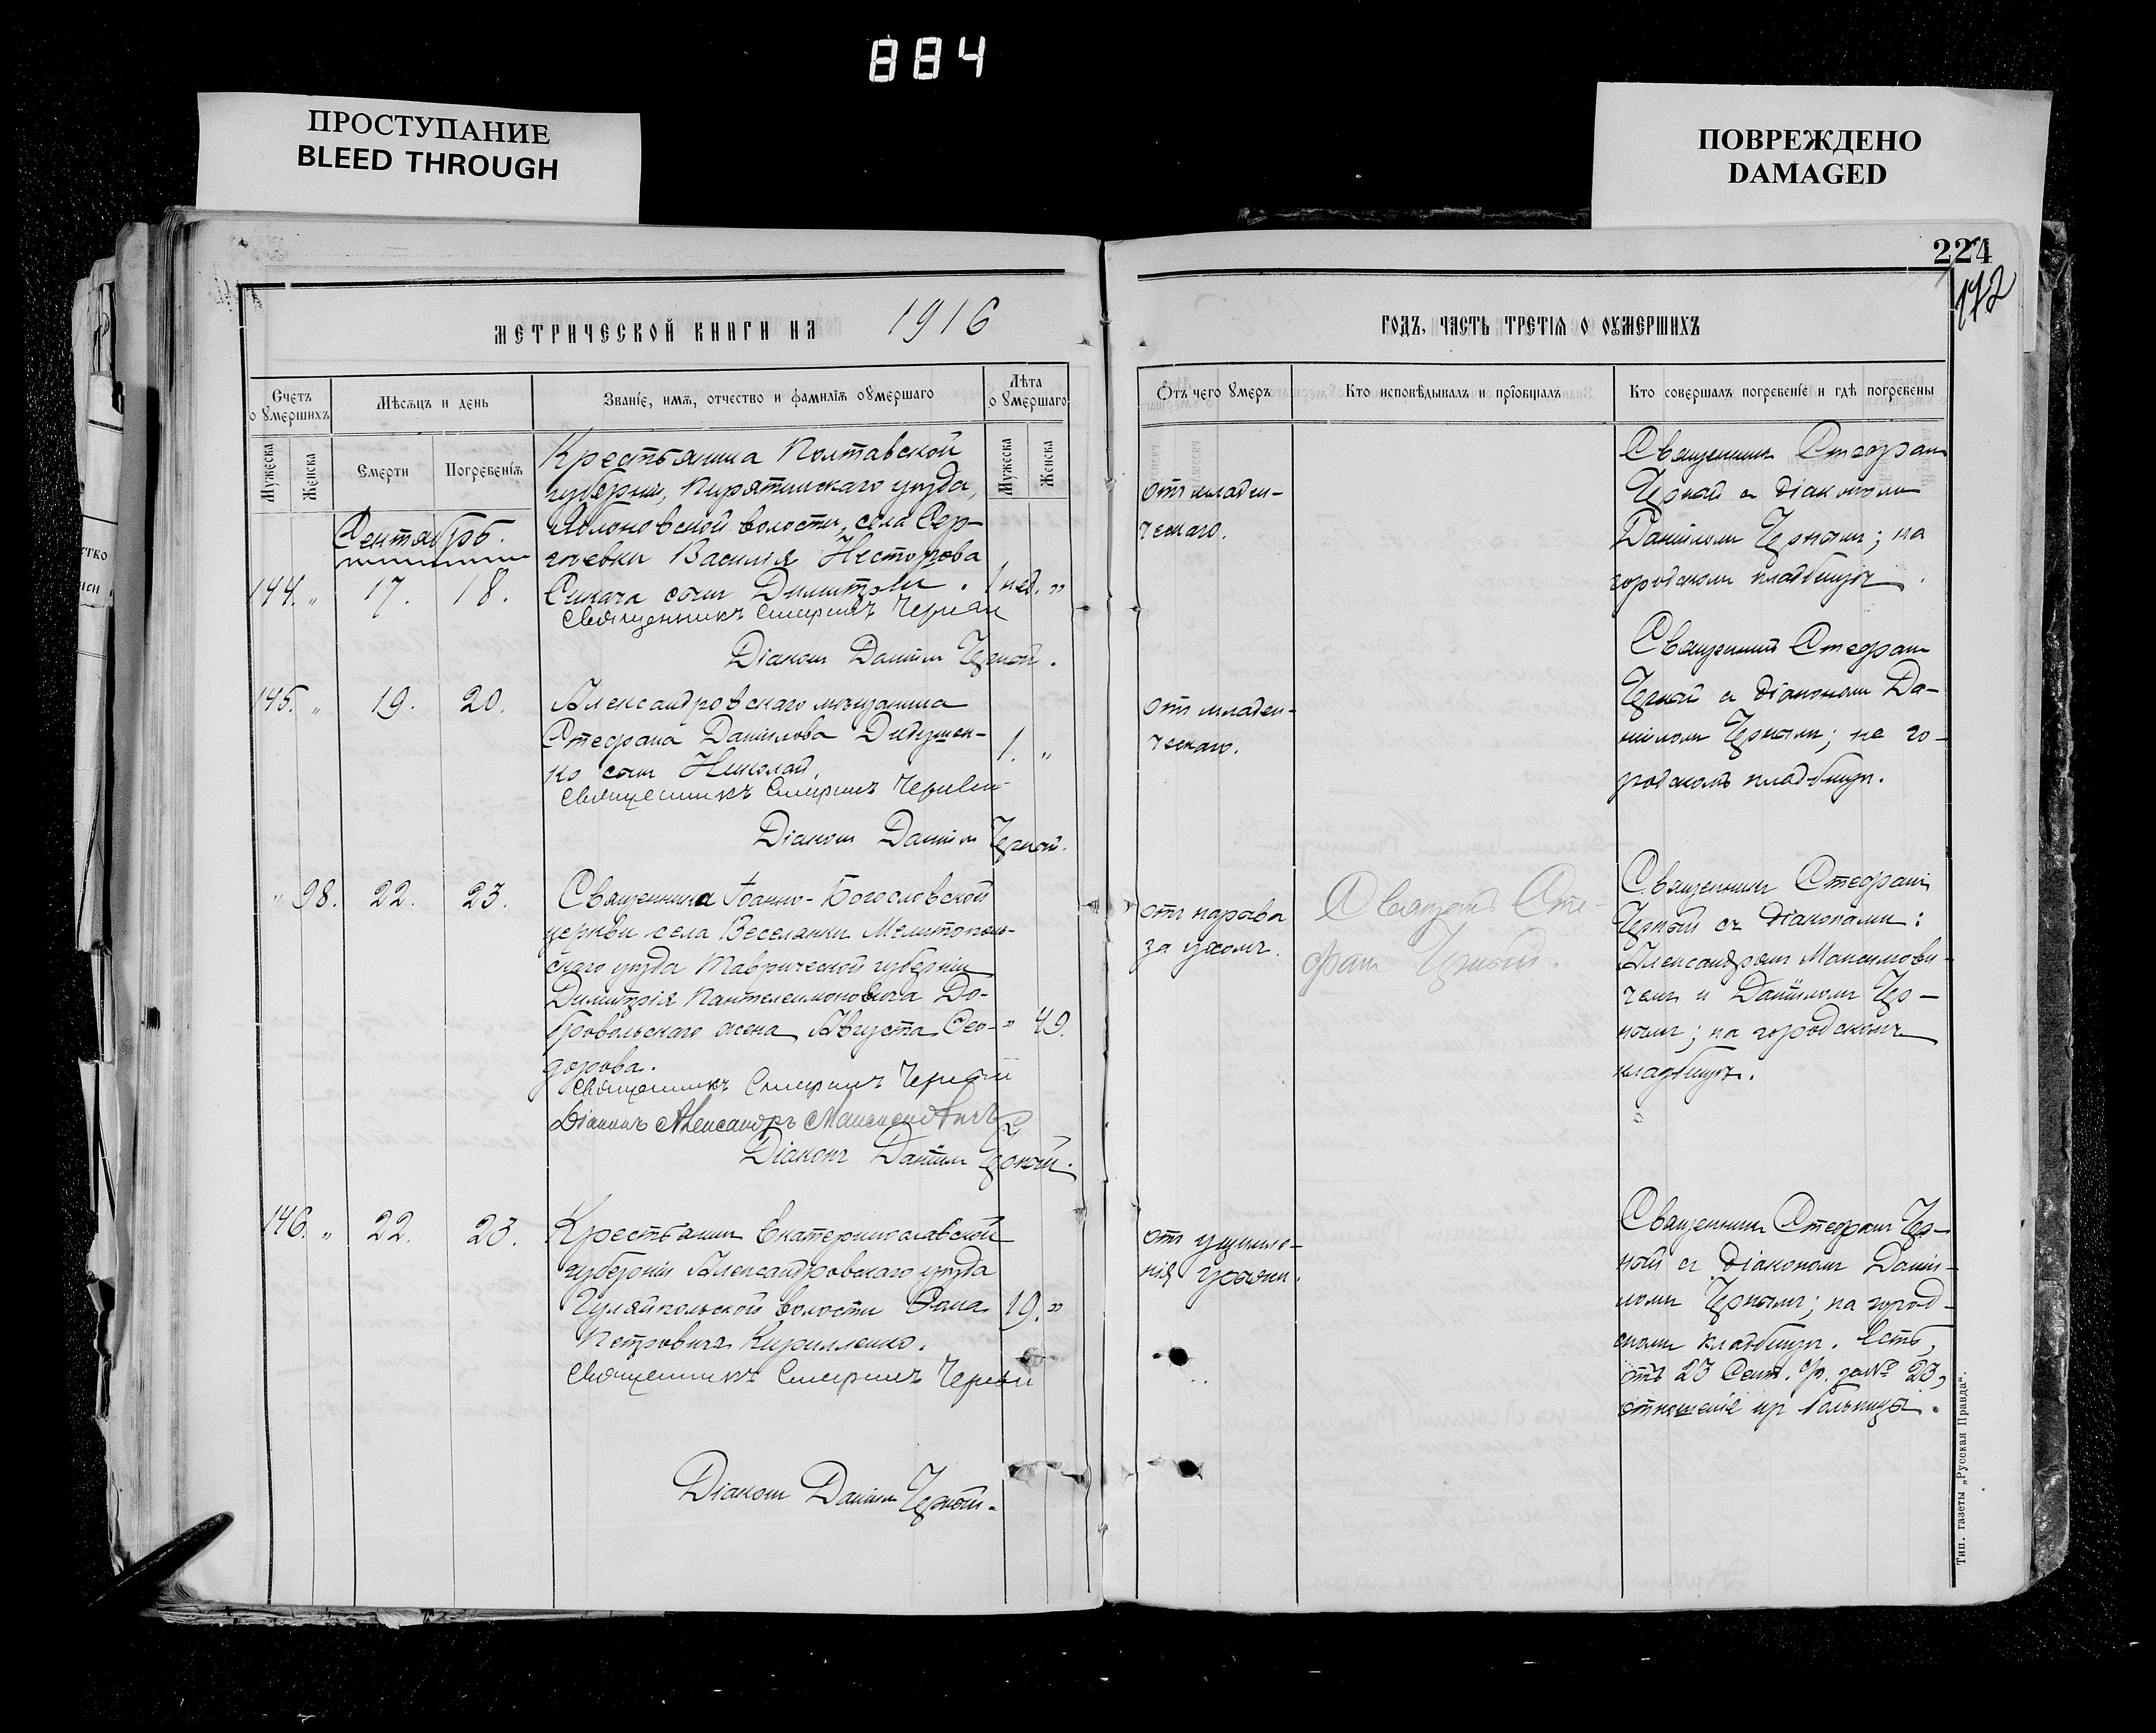 884
ПРОСТУПАНИЕ
BLEED THROUGH
ПОВРЕЖДЕНО
DAMAGED
224
172
МЕТРИЧЕСКОЙ КНИГИ НА 1916
ГОДЪ, ЧАСТЬ ТРЕТІЯ О ОУМЕРШИХЪ
Счетъ о умершихъ
Мѣсяцъ и день
Званіе, имя, отчество и фамилія оумершаго
Лѣта о умершаго
Мужеска
Женска
Смерти
Погребенія
Мужеска
Женска
Отъ чего умеръ
Кто исповѣдывалъ и пріобщалъ
Кто совершалъ погребеніе и гдѣ погребены
Сентябрь.
144. " 17. 18.
Крестьянина Полтавской
губерніи, Пирятинскаго уѣзда,
Яблоновской волости, села Сер-
гѣевки Василія Несторова
сынъ Димитрій. 1 нед. "
Священникъ Стефанъ Черный
Діаконъ Даніилъ Черный.
отъ младен-
ческаго.
Священникъ Стефанъ
Черный съ діакономъ
Даніиломъ Чернымъ; на
городскомъ кладбищѣ.
145. " 19. 20.
Александровскаго мѣщанина
Стефана Даніилова Дидушен-
ко сынъ Николай. 1. "
Священникъ Стефанъ Черный
Діаконъ Даніилъ Черный.
отъ младен-
ческаго.
Священникъ Стефанъ
Черный съ діакономъ Да-
ніиломъ Чернымъ; на го-
родскомъ кладбищѣ.
" 98. 22. 23.
Священника Іоанно-Богословской
церкви села Веселянки Мелитополь-
скаго уѣзда Таврической губерніи
Димитрія Пантелеимоновича До-
бровольскаго жена Августа Ѳео- " 49.
дорова.
Священникъ Стефанъ Черный
Діаконъ Александръ Максимовичъ
Діаконъ Даніилъ Черный.
отъ нарыва
за ухомъ.
Священ. Сте-
фанъ Черный.
Священникъ Стефанъ
Черный съ діаконами:
Александромъ Максимови-
чемъ и Даніиломъ Чер-
нымъ; на городскомъ
кладбищѣ.
146. " 22. 23.
Крестьянинъ Екатеринославской
губерніи Александровскаго уѣзда
Гуляйпольской волости Ѳома 19. "
Петровичъ Кирилленко.
Священникъ Стефанъ Черный
Діаконъ Даніилъ Черный.
отъ ущемле-
нія грыжи.
Священникъ Стефанъ Чер-
ный съ діакономъ Даніи-
ломъ Чернымъ; на город-
скомъ кладбищѣ. Есть,
отъ 23 Сент. с/г. за № 23,
отношеніе больницы.
Тип. газеты „Русская Правда“.